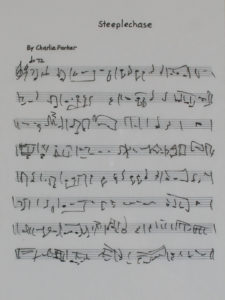 Steeplechase
By Charlie Parker